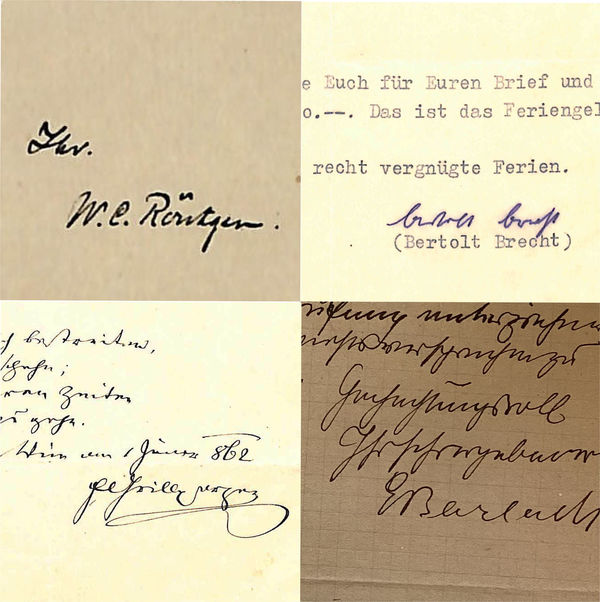 Ihr.
W. C. Röntgen.
e Euch für Euren Brief und
o.--. Das ist das Feriengel
recht vergnügte Ferien.
bertolt brecht
(Bertolt Brecht)
bestreiten,
Zeiten
gehn.
Wien am 1 Jäner 862
Grillparzer
unterziehen
zu
Hochachtungsvoll
Ihr sehr ergebener
E Barlach